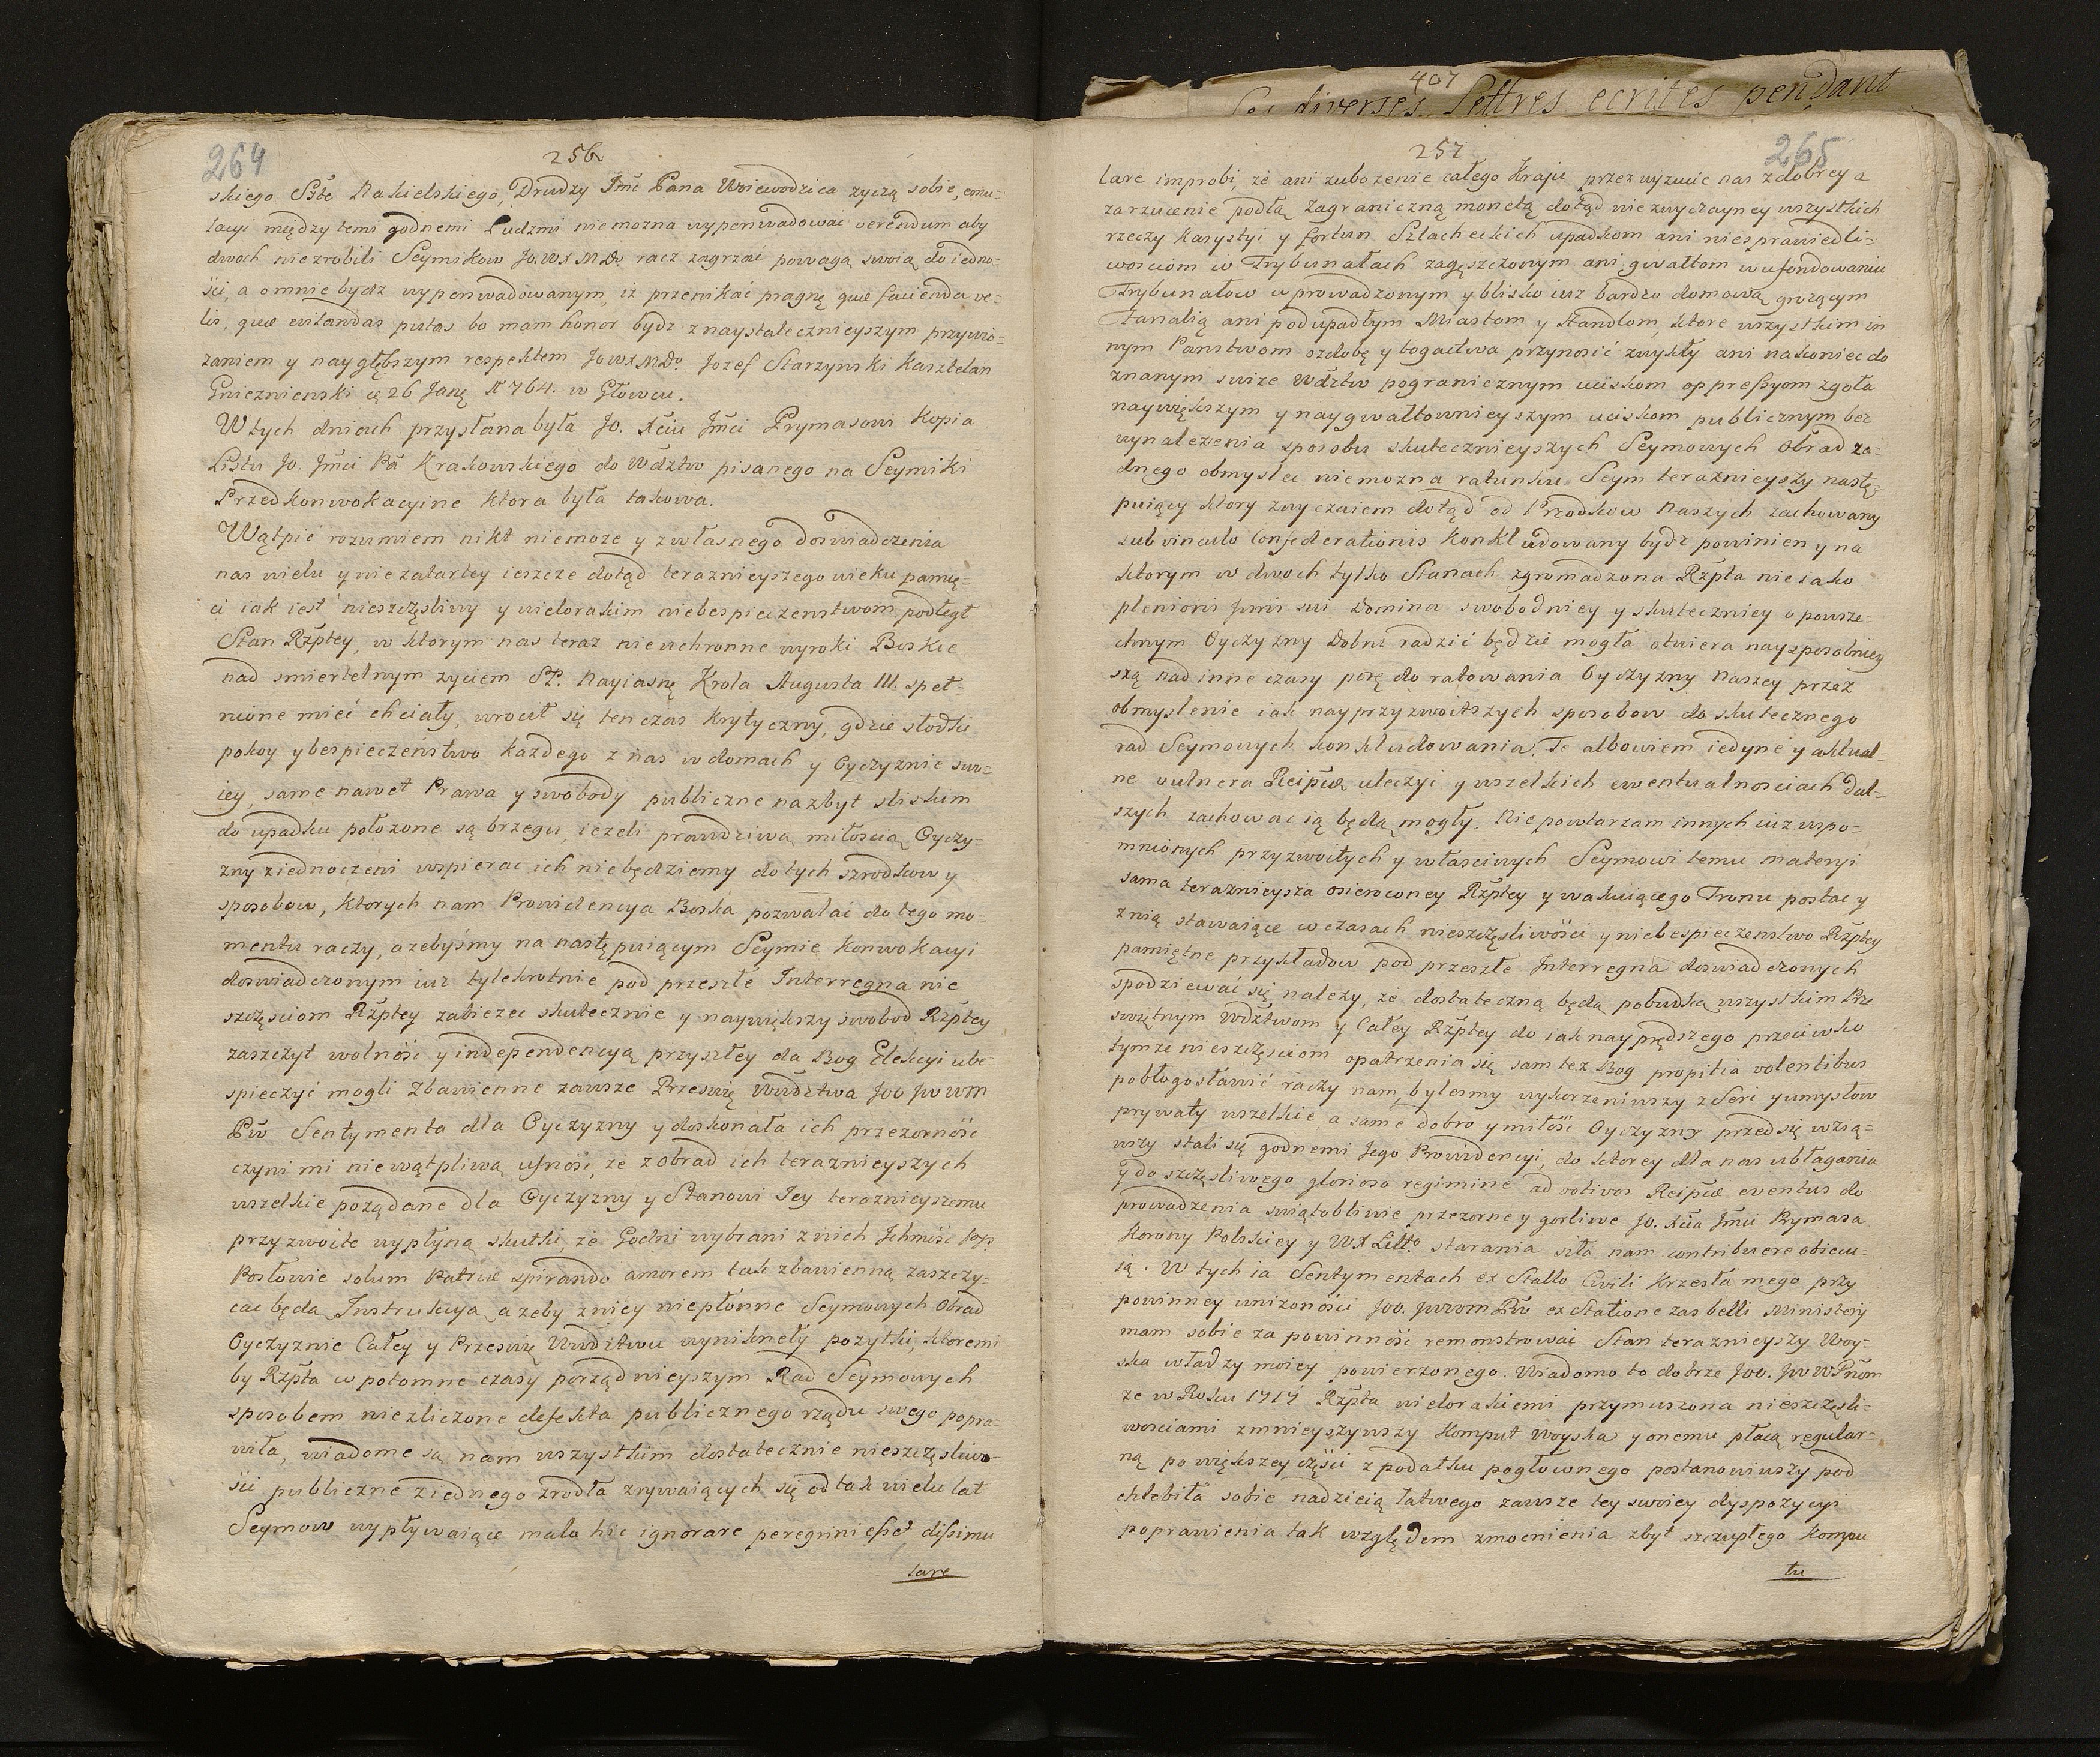 264
256
skiego Sště Nakielskiego, Drudzy Jmć Pana Woiewodzica zyczą sobie, emu-
lacyi między temi godnemi Ludzmi niemozna wyperswadować verendum aby
dwoch niezrobili Seymikow Jo.WXMDo. racz zagrzać powagą swoią do iedno-
ści, a o mnie bydz wyperswadowanym, iz przenikać pragnę quæ facienda ve-
lis, quæ evitandas putas bo mam honor bydz z naystatecznieyszym przywią-
zaniem y naygłębszym respektem JoWXMDo. Jozef Starzynski Kasztelan
Gnieznienski 26 Janę 1764. w Głowcu.
W tych dniach przysłana była Jo. Xciu Jmći Prymasowi Kopia
Listu Jo. Jmći Pã Krakowskiego do Wdztw pisanego na Seymiki
Przedkonwokacyine ktora była takowa.
Wątpić rozumiem nikt niemoze y z własnego doswiadczenia
nas wielu y niezatartey ieszcze dotąd teraznieyszego wieku pamię-
ci iak iest nieszczęsliwy y wielorakim niebespieczenstwom podległ
Stan Rzptey, w ktorym nas teraz nieuchronne wyroki Boskie
nad smiertelnym zyciem SP. Nayiasnę Krola Augusta III. speł-
nione mieć chciały, wrocił się ten czas krytyczny, gdzie słodki
pokoy y bespieczenstwo kazdego z nas w domach y Oyczyznie swo-
iey, same nawet Prawa y swobody publiczne nazbyt sliskim
do upadku położone są brzegu, iezeli prawdziwą miłoscią Oyczy-
zny ziednoczeni wspierac ich niebędziemy do tych szrodkow y
sposobow, ktorych nam Prowidencya Boska pozwalać do tego mo-
mentu raczy, azebyśmy na następuiącym Seymie Konwokacyi
doswiadczonym iuz tylekrotnie pod przeszłe Interregna nie
szczęsciom Rzptey zabiezec skutecznie y naywiększy swobod Rzptey
zaszczyt wolność y independencyą przyszłey da Bog Elekcyi ube
spieczyć mogli Zbawienne zawsze Przeswię Wwdztwa Joo Jwwm
Pw Sentymenta dla Oyczyzny y doskonała ich przezorność
czyni mi niewątpliwą ufność, że z obrad ich teraznieyszych
wszelkie pożądane dla Oyczyzny y Stanowi Jey teraznieyszemu
przyzwoite wypłyną skutki, że Godni wybrani z nich Ichmość Pp.
Posłowie solum Patriæ spirando amorem tak zbawienną zaszczy-
cac będa Instrukcyą, azeby z niey niepłonne Seymowych Obrad
Oyczyznie Całey y Przeswię Wwdztwu wyniknęły pozytki, ktoremi
by Rzpta w potomne czasy porządnieyszym Rad Seymowych
sposobem niezliczone defekta publicznego rządu swego popra-
wiła, wiadome są nam wszystkim dostatecznie nieszczęsliwo-
ści publiczne z iednego zrodła zrywaiących się od tak wielu lat
Seymow wypływaiące mala hic ignorare peregrini eſse, diſsimu
lare
407
Les diverses Lettres ecrites pendant
257
265
lare improbi, że ani zubozenie całego Kraju przez wyzucie nas z dobrey a
zarzucenie podłą zagraniczną monetą dotąd niezwyczayney wszystkich
rzeczy karystyi y fortun Szlacheckich upadkom ani niesprawiedli-
wosciom w Trybunałach zagęszczonym ani gwałtom w ufondowaniu
Trybunałow wprowadzonym y blisko iuz bardzo domową grozącym
fatalią ani podupadłym Miastom y Handlom, ktore wszystkim in
nym Panstwom ozdobę y bogactwa przynosić zwykły ani nakoniec do
znanym swize Wdztw pogranicznym uciskom oppreſsyom zgoła
naywiększym y naygwałtownieyszym uciskom publicznym bez
wynalezenia sposobu skutecznieyszych Seymowych Obrad za-
dnego obmyslec niemozna ratunku. Seym teraznieyszy nastę-
puiący ktory zwyczaiem dotąd od Przodkow Naszych zachowany
sub vinculo Confederationis Konkludowany bydz powinien y na
ktorym w dwoch tylko Stanach zgromadzona Rzpta nie iako
plenioni Juris sui Domina swobodniey y skuteczniey o powsze-
chnym Oyczyzny Dobru radzić będzie mogła otwiera naysposobniey
szą nad inne czasy porę do ratowania Oyczyzny Naszey przez
obmyslenie iak nayprzyzwoitszych sposobow do skutecznego
rad Seymowych konkludowania. Te albowiem iedyne y aktual-
ne vulnera Reipuæ uleczyć y wszelkich ewentualnosciach dal-
szych zachowac ią będą mogły. Nie powtarzam innych iuz wspo-
mnionych przyzwoitych y własciwych Seymowi temu materyi
sama teraznieysza osieroconey Rzptey y wakuiącego Tronu postac y
z nią stawaiące w czasach nieszczęsliwości y niebespieczenstwo Rzptey
pamiętne przykładow pod przeszłe Interregna doswiadczonych
spodziewać się nalezy, że dostateczną będą pobudką wszystkim Prze
swiętnym Wdztwom y Całey Rzptey do iak nayprędszego przeciwko
tymze nieszczęsciom opatrzenia się sam tez Bog propitia volentibus
pobłogosławić raczy nam, bylesmy wykorzeniwszy z Serc y umysłow
prywaty wszelkie, a same dobro y miłość Oyczyzny przed się wzią-
wszy stali się godnemi Jego Prowidencyi, do ktorey dla nas ubłagania
y do szczęsliwego glorioso regimine ad votivos Reipuæ eventus do
prowadzenia swiątobliwie przezorne y gorliwe Jo. Xcia Jmći Prymasa
Korony Polskiey y WX Litto. starania siła nam contribuere obiecu-
ią. W tych ia Sentymentach ex Stallo Civili Krzesła mego przy
powinney unizoności Joo. Jwwm Pw ex Statione zas belli Ministerij
mam sobie za powinność remonstrować Stan teraznieyszy Woy-
ska władzy moiey powierzonego. Wiadomo to dobrze Joo. Jw WPnom
że w Roku 1717 Rzpta wielorakiemi przymuszona nieszczęsli-
wosciami zmnieyszywszy Komput woyska y onemu płacą regular-
ną po większey części z podatku pogłownego postanowiwszy pod
chlebiła sobie nadzieią łatwego zawsze tey swoiey dyspozycyi
poprawienia tak względem zmocnienia zbyt szczupłego Kompu
tu